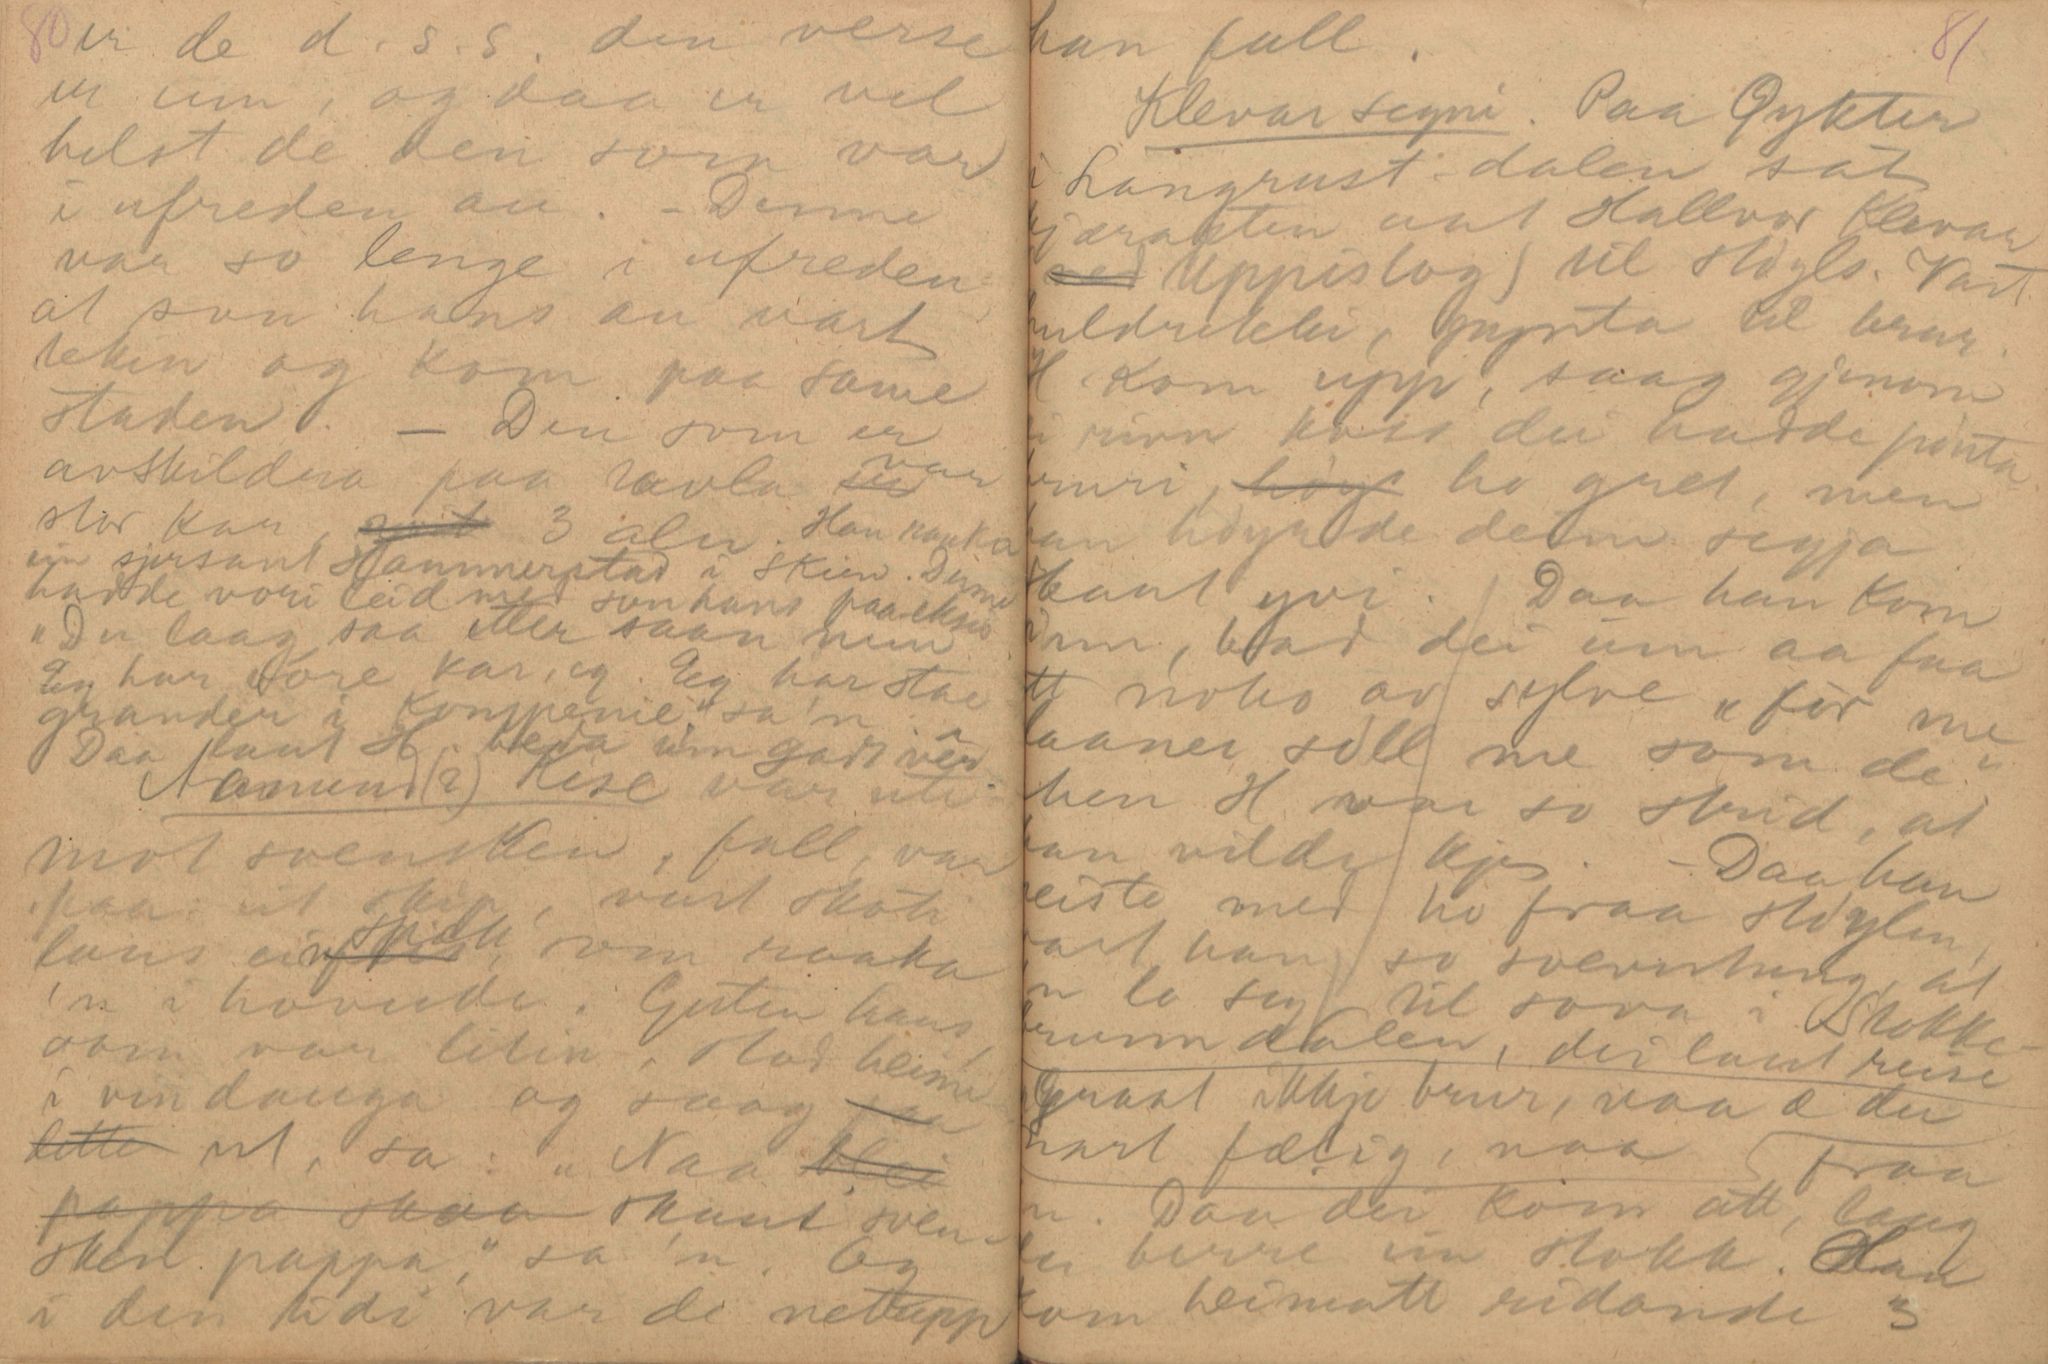 80
er de d.s.s. den verse
er um, og daa er vel
helst de den som var
i ufreden au. – Denne
var so lenge i ufreden
at son hans au vart
tekin og kom paa same
staden. – Den som er
avskildra paa tavla var
stor kar, 3 alner. Han
ein sjersant Hammerstad i Skien. Denne
hadde vori leid med son hans paa
"Du laag saa etter saan min
Eg har vore kar, eg. Eg har stae
grander i kompenie" sa'n.
Daa laut H. beda um godt vêr
Aamund (?) Rise var uti
mot svensken, fall, var
paa eit skip, vart skoti
laus ein spikk, som raaka
'n i hovude. Guten hans,
som var litin, stod heime
i vindauga og saag saa
lette ut, sa: "Naa blei
pappa skaa skaut sven-
sken pappa," sa 'n. Og
i den tidi var de nettupp
81
han fall.
Klevar segni. Paa Gykter
i Langrust-dalen sat
gjæranten aat Hallvor Klevar
Uppistog) til støyls. Vart
huldrekki, pynta til brur.
H kom upp, saag gjenom
ei rivn koss dei hadde pynta
bruri, høyr ho gret, men
han høyrde deim segja
skaut yvi. Daa han kom
inn, bad dei um aa faa
att noko av sylve "för me
laaner söll me som de"
hen H var so strid, at
han vilde kje. – Daa han
reiste med ho fraa støylen,
vart han so svevntung, at
'n la seg til sova i Stokke-
brunndalen, dei laut reise
Graat ikkje brur, naa æ du
snart fælig, naa
fraa
'n. Daa dei kom att, laag
der berre ein stokk. Han
kom heimatt ridande 3